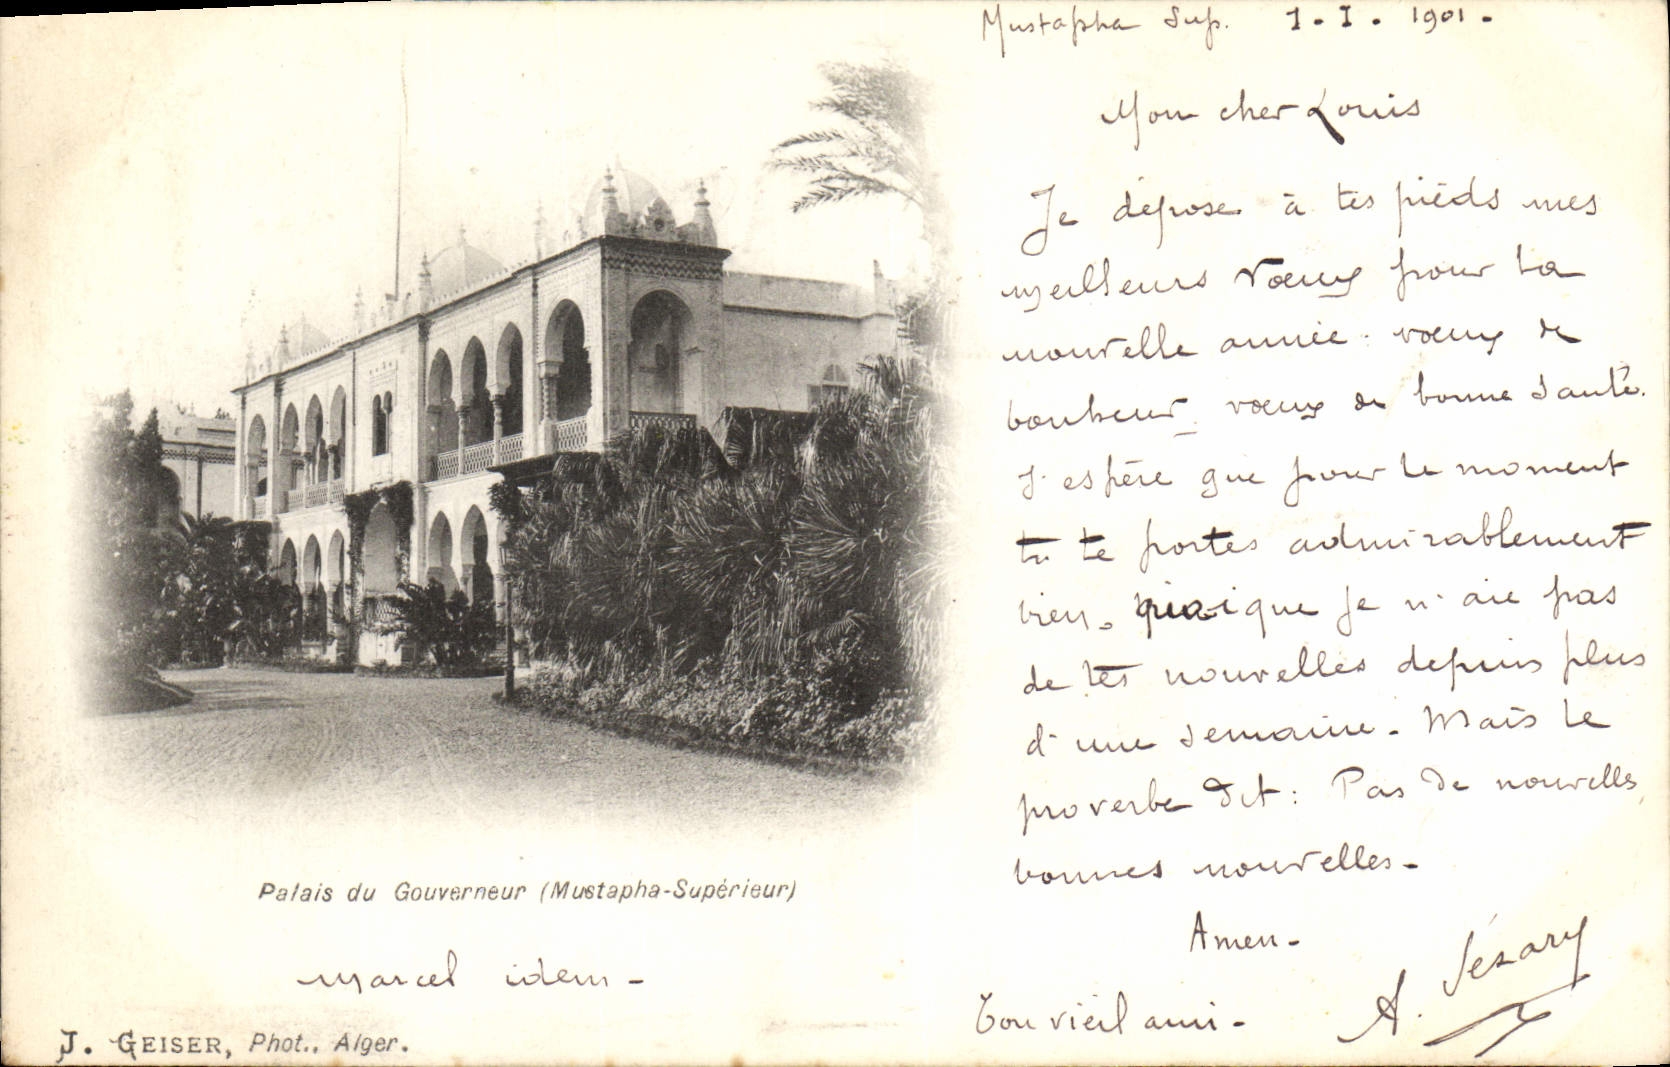 Mustapha Sup. 1.I.1901.
Mon cher Louis
Je dépose à tes pieds mes
meilleurs vœux pour la
nouvelle année : vœux de
bonheur, vœux de bonne santé.
J'espère que pour le moment
tu te portes admirablement
bien, quoique je n'aie pas
de tes nouvelles depuis plus
d'une semaine. Mais le
proverbe dit : Pas de nouvelles,
bonnes nouvelles.
Amen.
Ton vieil ami.
A. Sézary
Palais du Gouverneur (Mustapha-Supérieur)
Marcel idem.
J. GEISER, Phot., Alger.